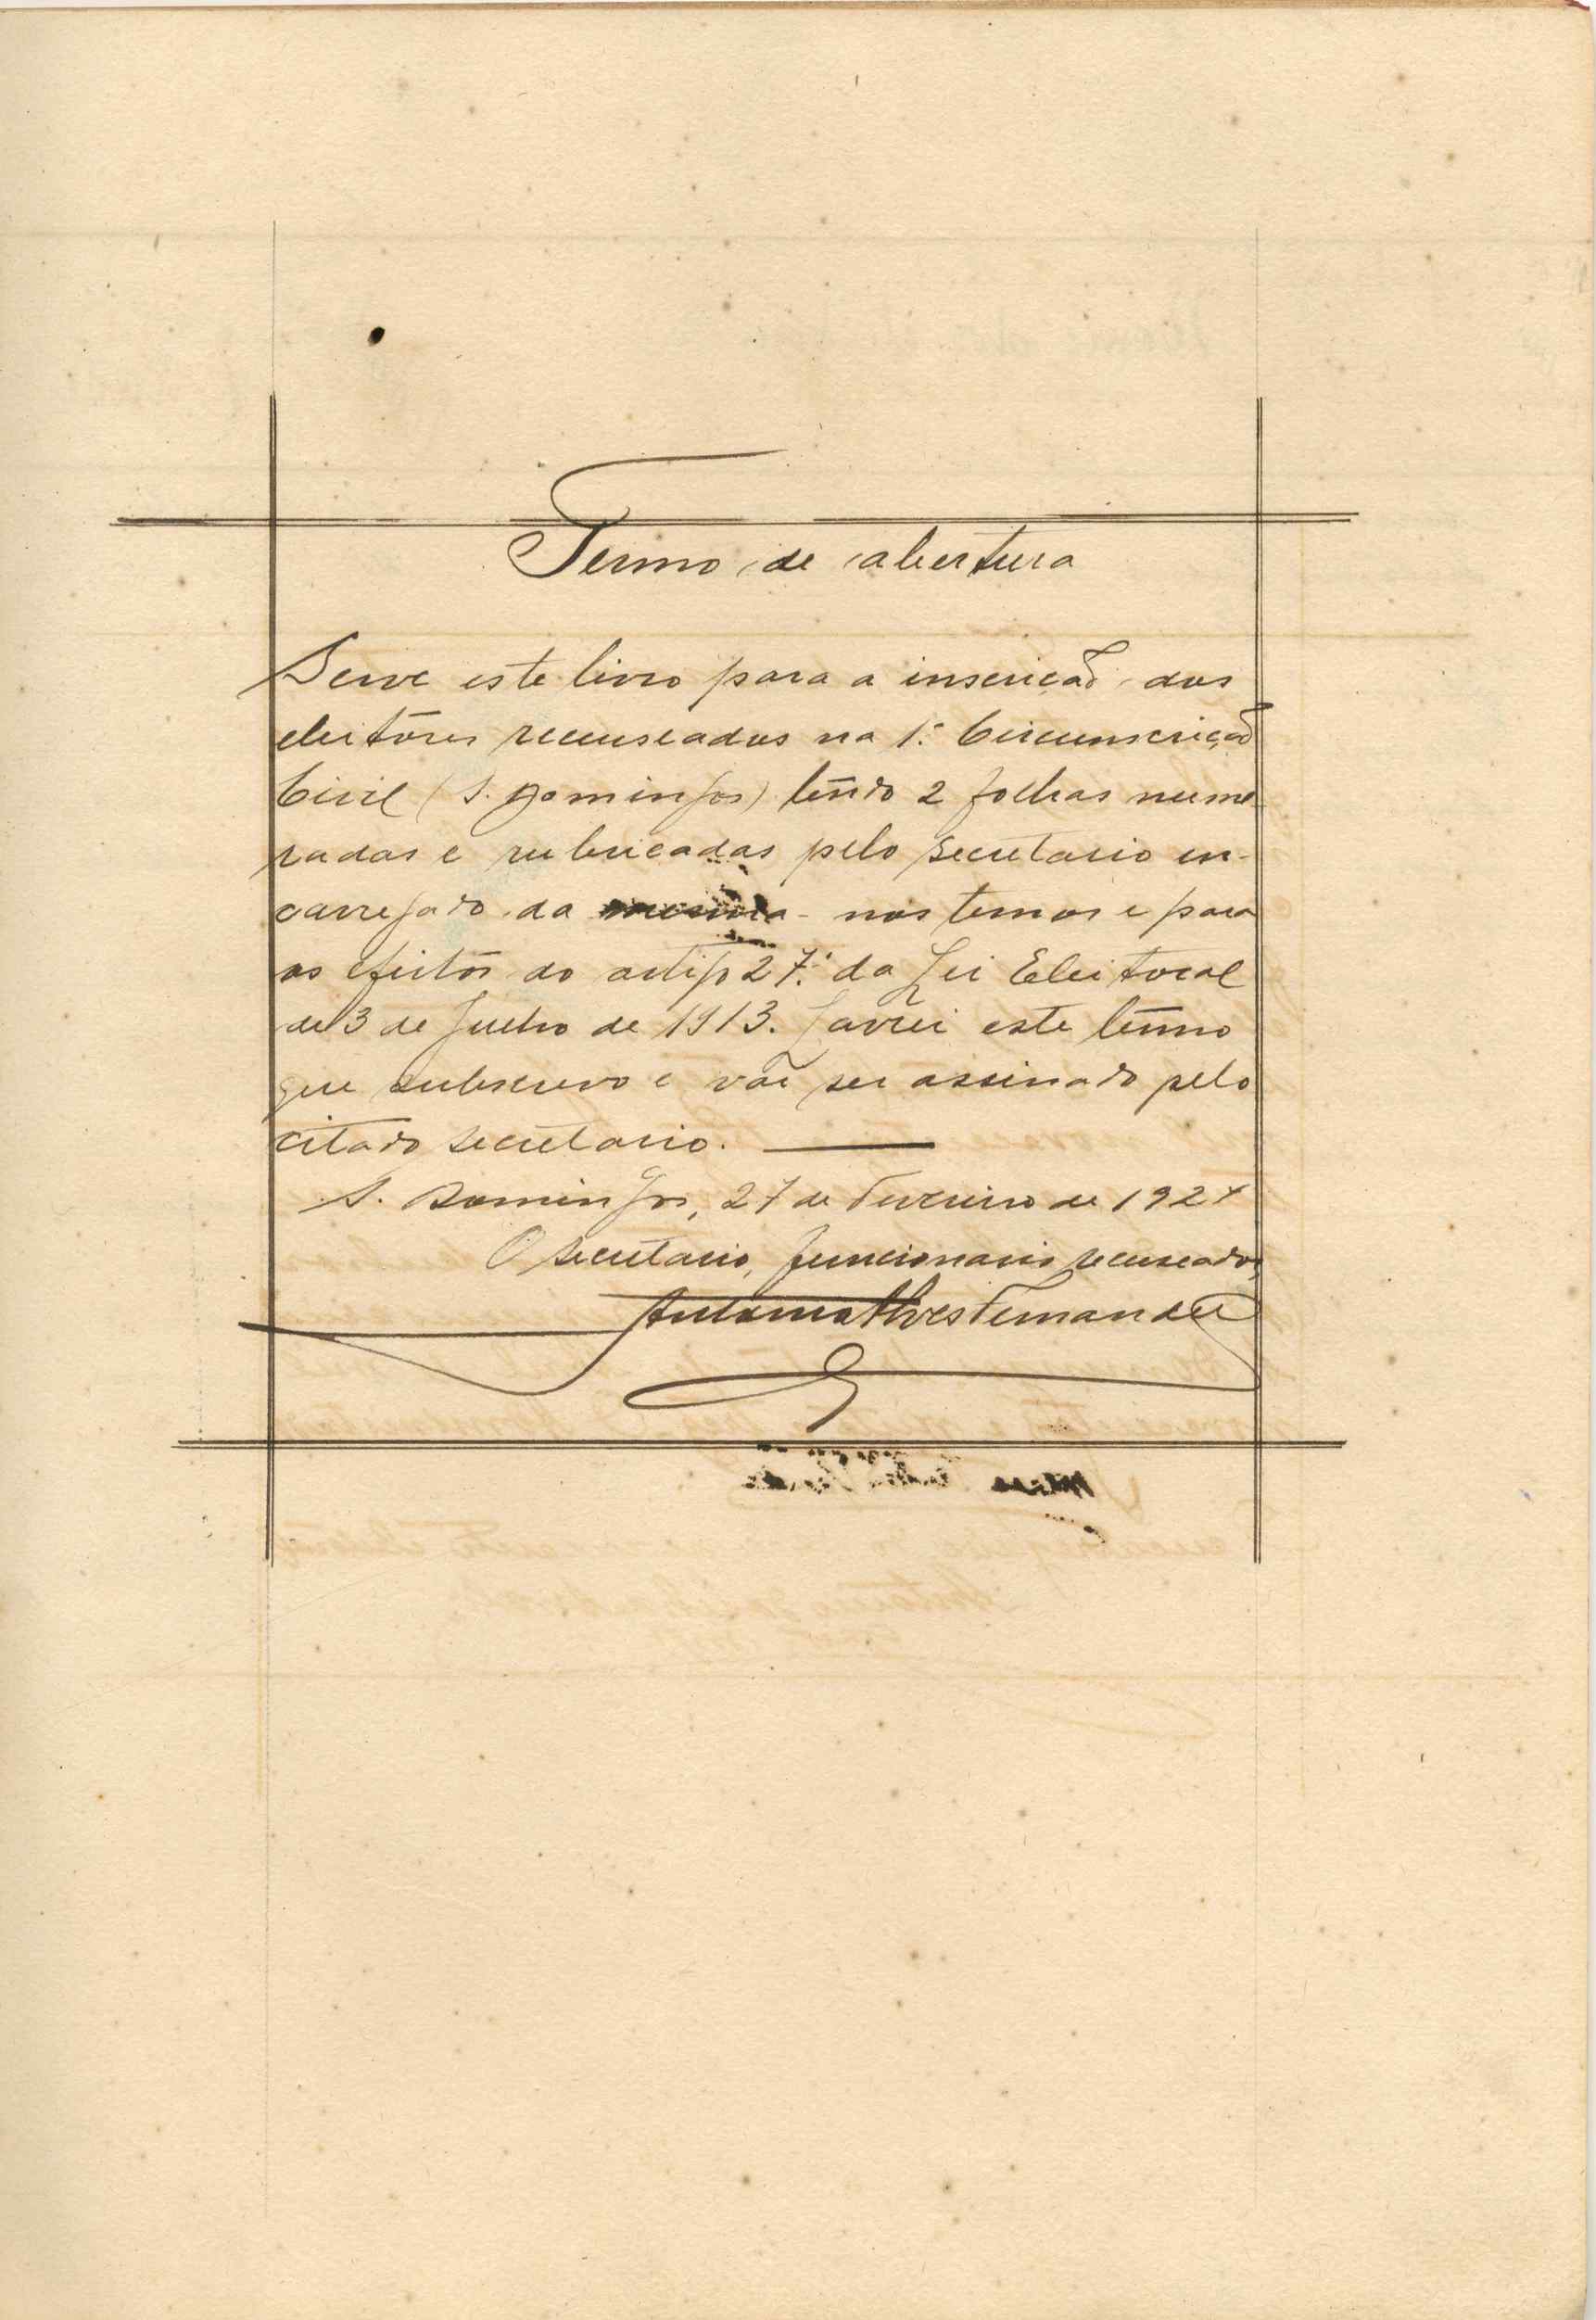 Termo de abertura
Serve este livro para a inscrição dos
eleitôres recenseados na 1.ª Circunscrição
Civil (S. Domingos) têndo 2 folhas nume
radas e rubricadas pelo secretario en-
carregado da mesma - nos termos e para
os efeitos do artigo 27.º da Lei Eleitoral
de 3 de Julho de 1913. Lavrei este têrmo
que subscrevo e vai ser assinado pelo
citado secretario.
S. Domingos, 27 de Fevereiro de 192
O secretario, funcionario recenseador,
Antonio Alves Fernandes